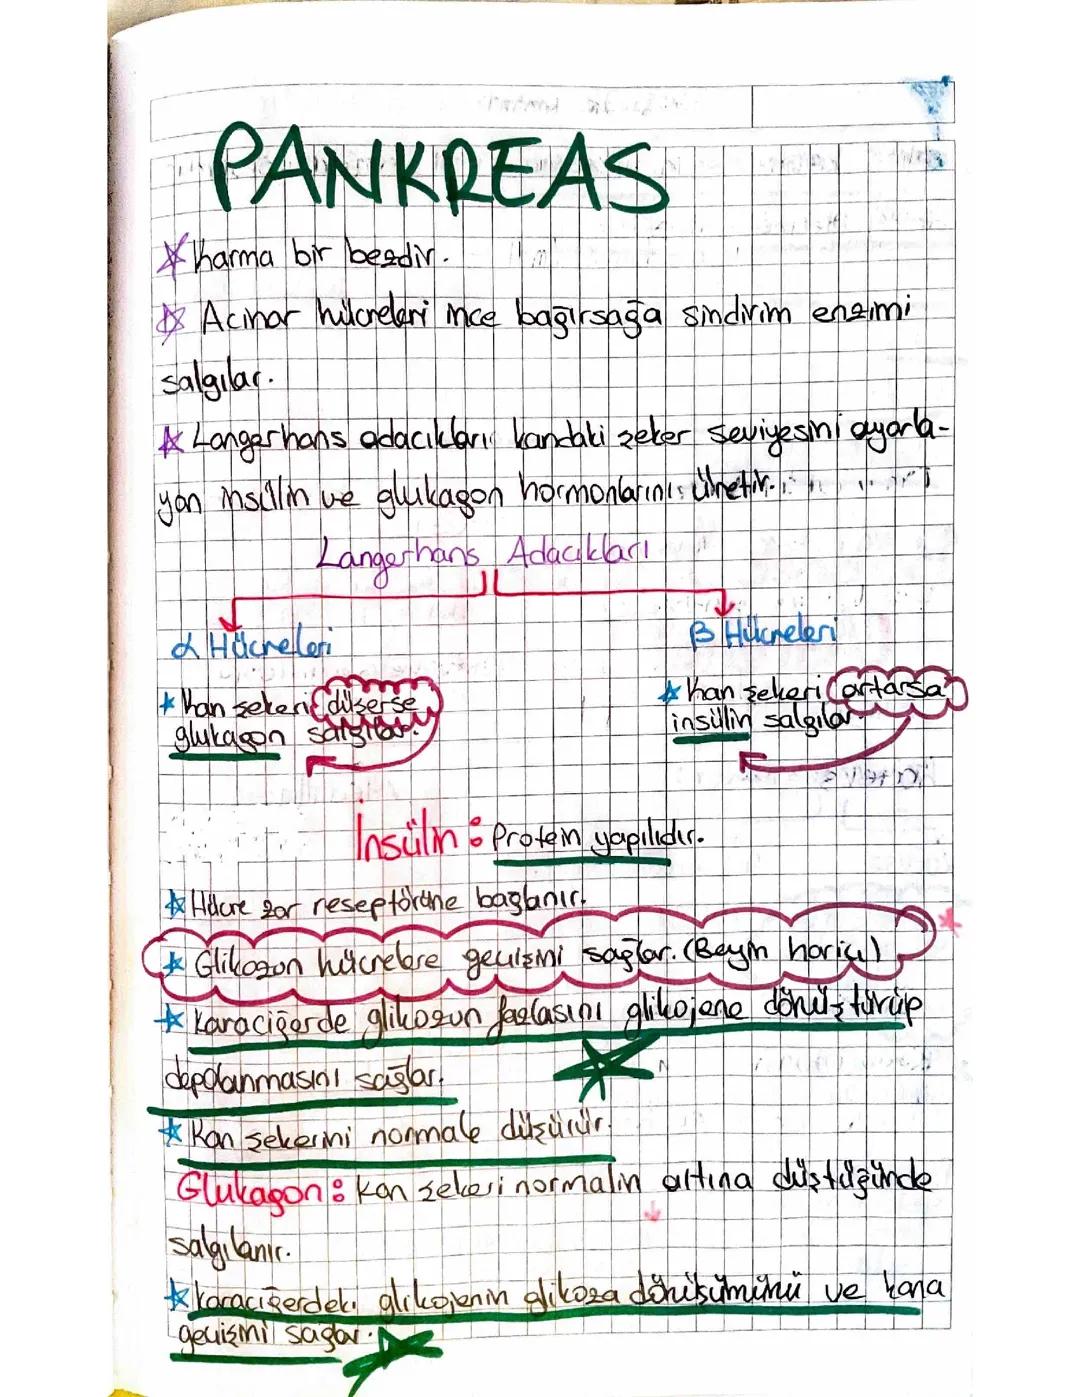 PANKREAS
Karma bir bezdir.
Acinar hücreleri ince bağırsağa sindirim enzimi
salgılar.
Langerhans adacıkları kandaki şeker seviyesini ayarla-
yan insülin ve glukagon hormonlarını üretir.
Langerhans Adacıkları
α Hücreleri
β Hücreleri
Kan şekeri düşerse
glukagon salgılar.
Kan şekeri artarsa
insülin salgılar
İnsülin: Protein yapılıdır.
Hücre zar reseptörüne bağlanır.
Glikozun hücrelere geçişini sağlar. (Beyin hariç)
Karaciğerde glikozun fazlasını glikojene dönüştürüp
depolanmasını sağlar.
Kan şekerini normale düşürür.
Glukagon: Kan şekeri normalin altına düştüğünde
salgılanır.
Karaciğerdeki glikojenin glikoza dönüşümünü ve kana
geçişini sağlar.